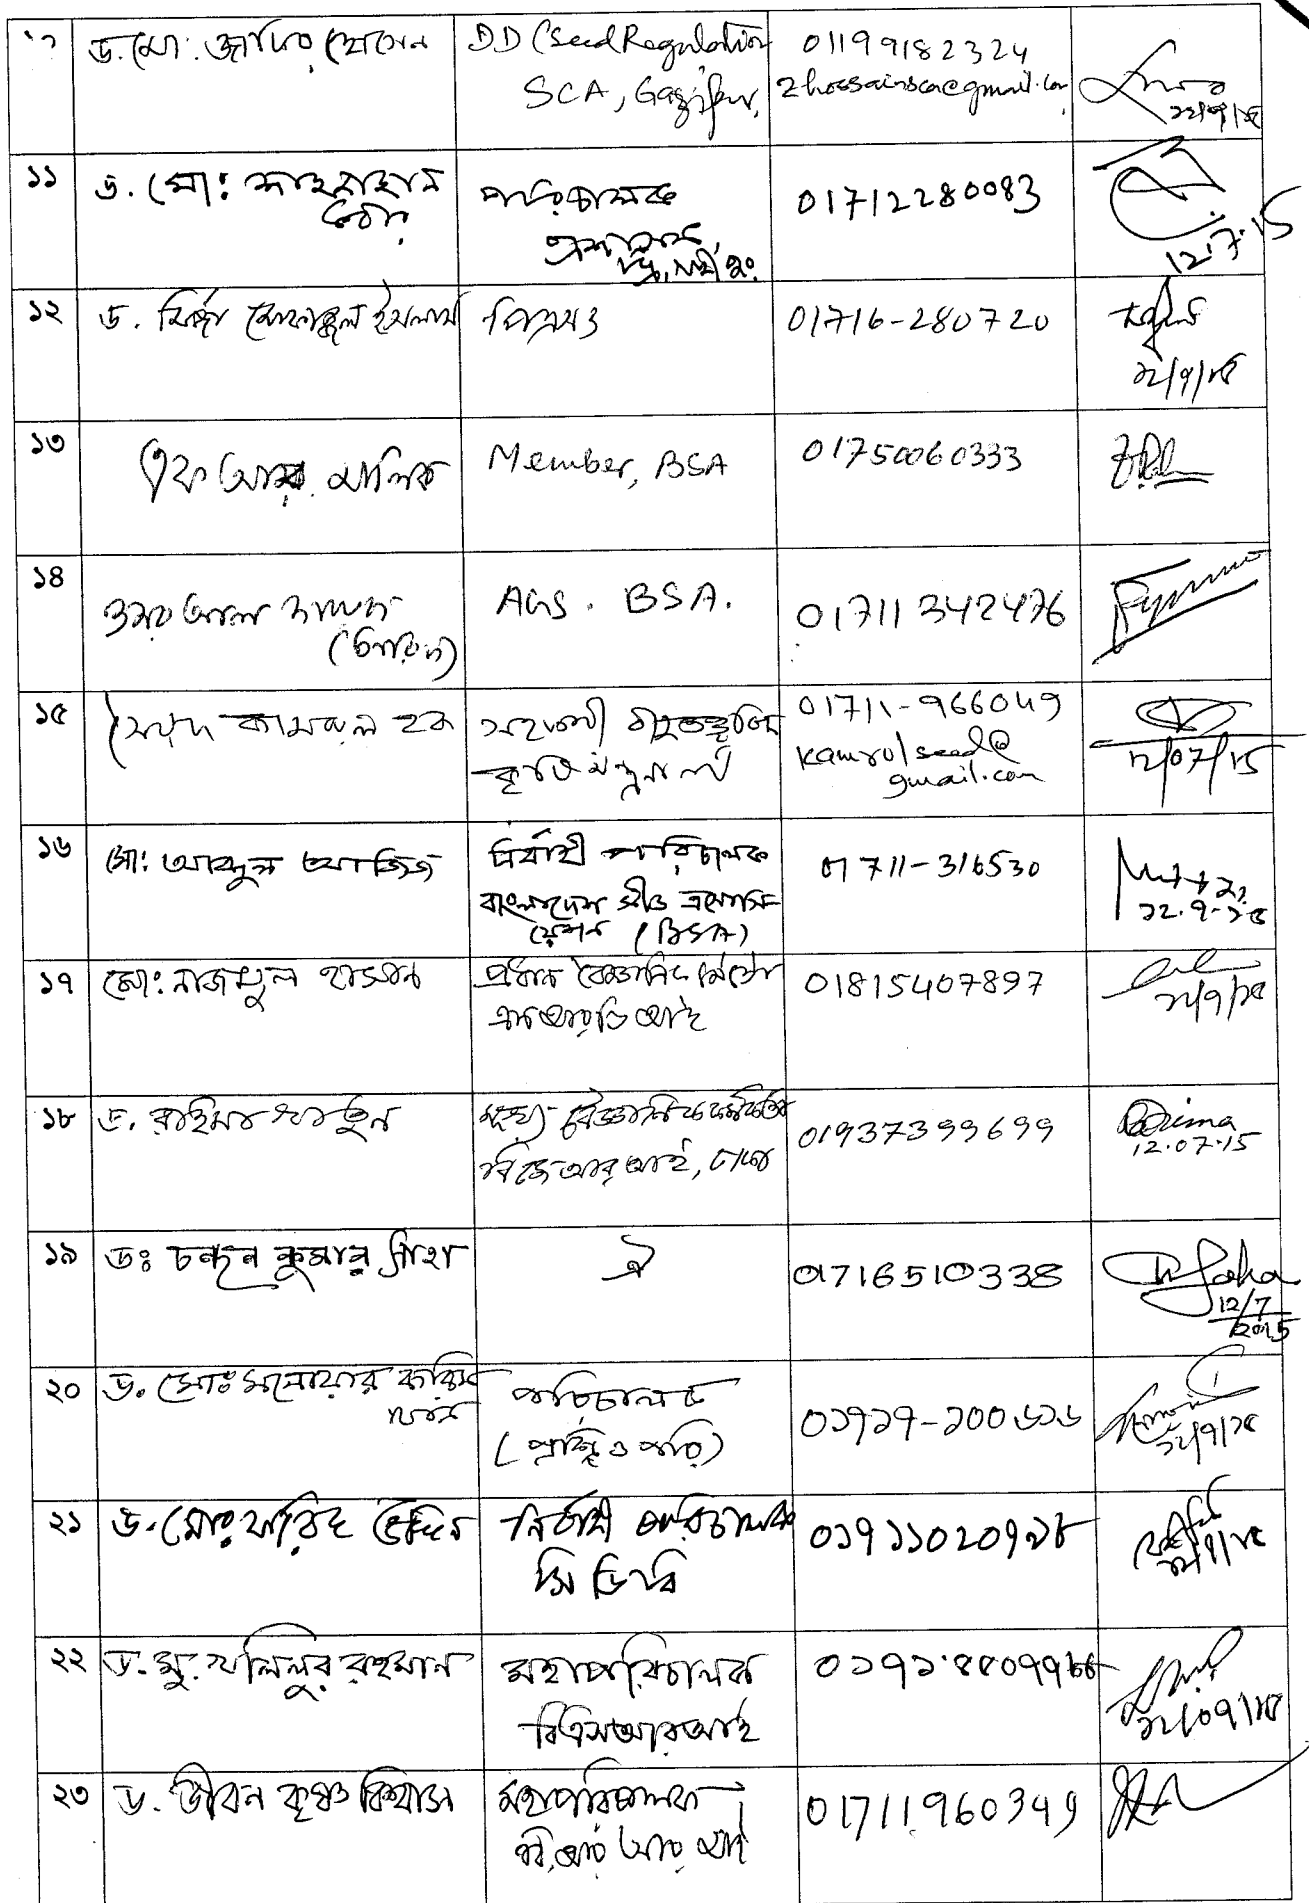 ড. মো: জাকির হোসেন
DD (Seed Regulation
SCA, Gazipur,
01199182324
zhossainsca@gmail.com
১১
ড. মো:
পরিচালক
01712280083
12.7.15
১২
ড. মির্জা মোফাজ্জল ইসলাম
পিএসও
01716-280720
১২/৭/১৫
১৩
এফ আর মালিক
Member, BSA
01750060333
১৪
BSA.
01711342476
১৫
সৈয়দ কামরুল হক
সহকারী বীজতত্ত্ববিদ
কৃষি মন্ত্রণালয়
01711-966049
kamrulseed@
gmail.com
12/07/15
১৬
মো: আব্দুল আজিজ
নির্বাহী পরিচালক
বাংলাদেশ সীড এসোসি-
য়েশন (BSA)
01711-316530
১২.৭.১৫
১৭
মো: নাজমুল হাসান
প্রধান বৈজ্ঞানিক
01815407897
১২/৭/১৫
১৮
ড. রহিমা খাতুন
মুখ্য বৈজ্ঞানিক কর্মকর্তা
বিজেআরআই, ঢাকা
01937399699
12.07.15
১৯
ডঃ চন্দন কুমার সাহা
ঐ
01716510338
Saha
12/7
2015
২০
ড. মোঃ মনোয়ার করিম
খান
পরিচালক
(প্রশি ও পরি)
০১৭১৭-১০০৬১৬
১২/৭/১৫
২১
ড. মোঃ ফরিদ উদ্দিন
নির্বাহী পরিচালক
সি ডিবি
২২
ড. মু. খলিলুর রহমান
মহাপরিচালক
বিএসআরআই
১২/০৭/১৫
২৩
ড. জীবন কৃষ্ণ বিশ্বাস
মহাপরিচালক
বি, আর আর আই
01711960349